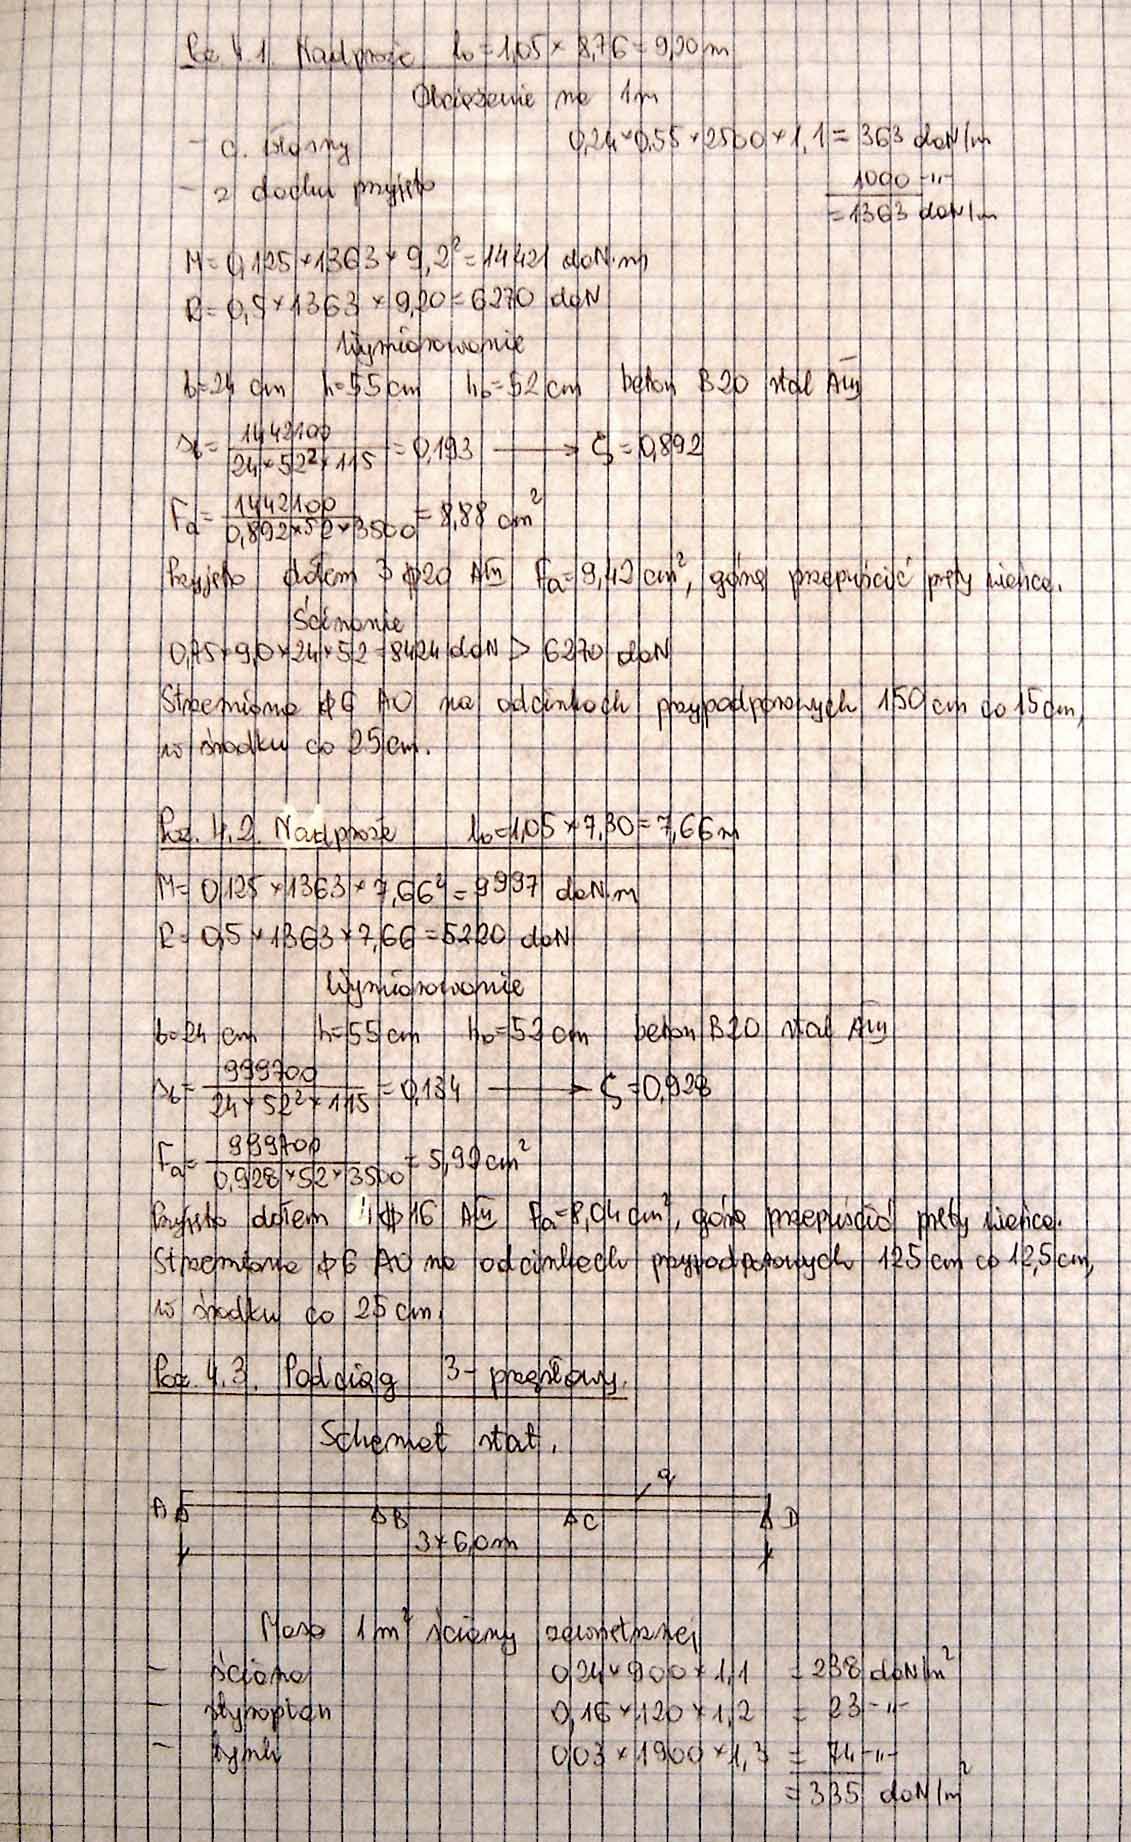 Poz. 4.1. Nadproże l₀=1,05×8,76=9,20m
Obciążenie na 1m
- c. własny 0,24×0,55×2500×1,1=363 daN/m
- z dachu przyjęto 1000 -"-
=1363 daN/m
M=0,125×1363×9,2²=14421 daN·m
R=0,5×1363×9,20=6270 daN
Wymiarowanie
b=24 cm h=55cm h₀=52cm beton B20 stal AIII
s_b= 1442100 / 24×52²×115 =0,193 → ζ=0,892
F_a= 1442100 / 0,892×52×3500 =8,88 cm²
Przyjęto dołem 3ϕ20 AIII F_a=9,42cm², górą przepuścić pręty wieńca.
Ścinanie
0,75×9,0×24×52=8424 daN > 6270 daN
Strzemiona ϕ6 A0 na odcinkach przypodporowych 150cm co 15cm,
w środku co 25cm.
Poz. 4.2. Nadproże l₀=1,05×7,30=7,66m
M=0,125×1363×7,66²=9997 daN·m
R=0,5×1363×7,66=5220 daN
Wymiarowanie
b=24 cm h=55cm h₀=52cm beton B20 stal AIII
s_b= 999700 / 24×52²×115 =0,134 → ζ=0,928
F_a= 999700 / 0,928×52×3500 =5,92cm²
Przyjęto dołem 4ϕ16 AIII F_a=8,04cm², górą przepuścić pręty wieńca.
Strzemiona ϕ6 A0 na odcinkach przypodporowych 125cm co 12,5cm,
w środku co 25cm.
Poz. 4.3. Podciąg 3-przęsłowy.
Schemat stat.
q
A B C D
3×6,0m
Masa 1m² ściany zewnętrznej
- ściana 0,24×900×1,1 =238 daN/m²
- styropian 0,16×120×1,2 = 23 -"-
- tynk 0,03×1900×1,3 = 74 -"-
=335 daN/m²